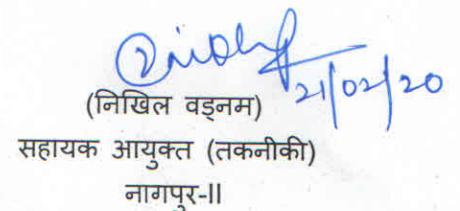 21/02/20
(निखिल वड्नम)
सहायक आयुक्त (तकनीकी)
नागपुर-II